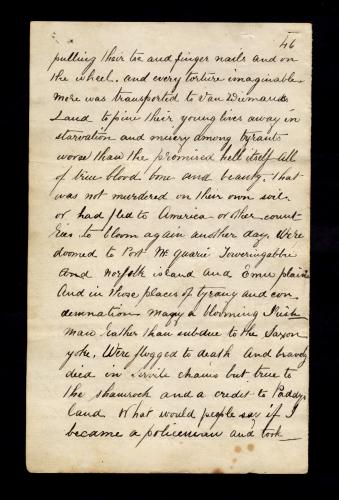 46
pulling their toe and finger nails and on
the wheel. and every torture imaginable
more was transported to Van Diemand's
Land to pine their young lives away in
starvation and misery among tyrants
worse than the promised hell itself all
of true blood bone and beauty. that
was not murdered on their own soil
or had fled to America or other count
ries to bloom again another day Were
doomed to Port McQuarie Toweringabbie
And Norfolk island and Emu plains
And in those places of tyrany and con
demnation many a blooming Irish
man rather than subdue to the Saxon
yoke. Were flogged to death And bravely
died in servile chains but true to
the shamrock and a credit to Paddys
land What would people say if I
became a policeman and took